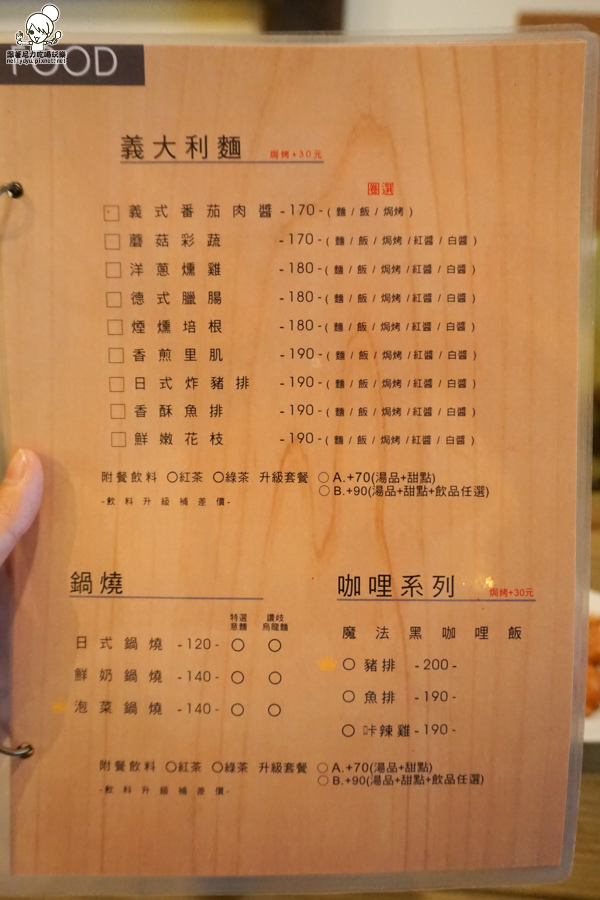 跟著尼力吃喝玩樂
nellydyu.pixnet.net
FOOD
義大利麵 焗烤+30元
圈選
義式番茄肉醬 -170- ( 麵 / 飯 / 焗烤 )
蘑菇彩蔬 -170- ( 麵 / 飯 / 焗烤 / 紅醬 / 白醬 )
洋蔥燻雞 -180- ( 麵 / 飯 / 焗烤 / 紅醬 / 白醬 )
德式臘腸 -180- ( 麵 / 飯 / 焗烤 / 紅醬 / 白醬 )
煙燻培根 -180- ( 麵 / 飯 / 焗烤 / 紅醬 / 白醬 )
香煎里肌 -190- ( 麵 / 飯 / 焗烤 / 紅醬 / 白醬 )
日式炸豬排 -190- ( 麵 / 飯 / 焗烤 / 紅醬 / 白醬 )
香酥魚排 -190- ( 麵 / 飯 / 焗烤 / 紅醬 / 白醬 )
鮮嫩花枝 -190- ( 麵 / 飯 / 焗烤 / 紅醬 / 白醬 )
附餐飲料 ○紅茶 ○綠茶 升級套餐 ○ A.+70(湯品+甜點)
○ B.+90(湯品+甜點+飲品任選)
-飲料升級補差價-
鍋燒
特選意麵 讚岐烏龍麵
日式鍋燒 -120- ○ ○
鮮奶鍋燒 -140- ○ ○
泡菜鍋燒 -140- ○ ○
咖哩系列 焗烤+30元
魔法黑咖哩飯
○ 豬排 -200-
○ 魚排 -190-
○ 卡辣雞 -190-
附餐飲料 ○紅茶 ○綠茶 升級套餐 ○ A.+70(湯品+甜點)
○ B.+90(湯品+甜點+飲品任選)
-飲料升級補差價-